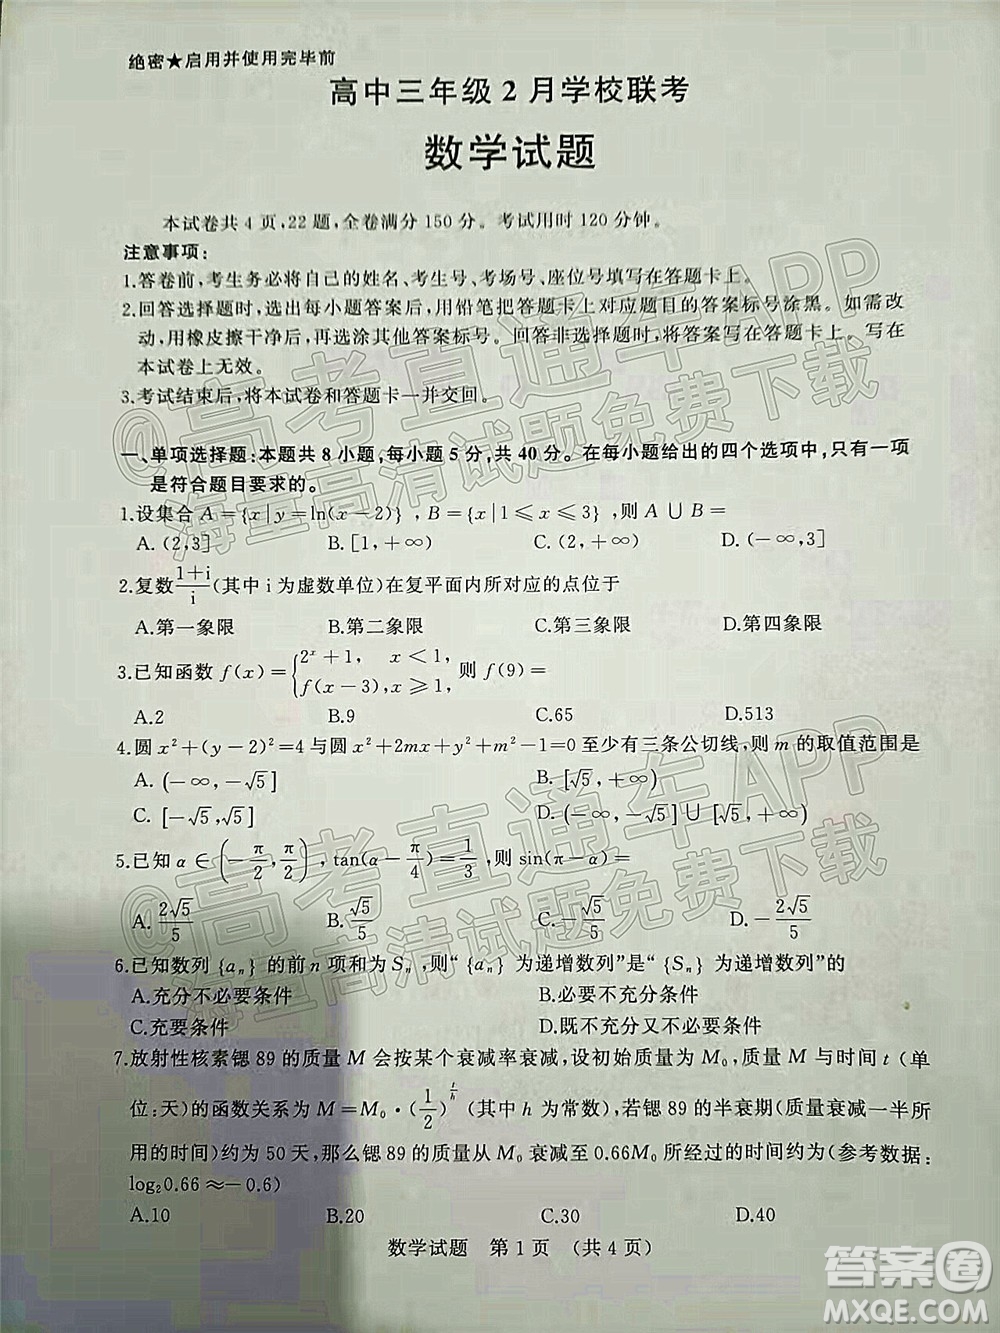 绝密★启用并使用完毕前
高中三年级2月学校联考
数学试题
本试卷共4页,22题,全卷满分150分。考试用时120分钟。
注意事项:
1.答卷前,考生务必将自己的姓名、考生号、考场号、座位号填写在答题卡上。
2.回答选择题时,选出每小题答案后,用铅笔把答题卡上对应题目的答案标号涂黑。如需改
动,用橡皮擦干净后,再选涂其他答案标号。回答非选择题时,将答案写在答题卡上。写在
本试卷上无效。
3.考试结束后,将本试卷和答题卡一并交回。
一、单项选择题:本题共8小题,每小题5分,共40分。在每小题给出的四个选项中,只有一项
是符合题目要求的。
1.设集合 A={x|y=ln(x-2)},B={x|1≤x≤3},则A∪B=
A.(2,3] B.[1,+∞) C.(2,+∞) D.(-∞,3]
2.复数(1+i)/i(其中i为虚数单位)在复平面内所对应的点位于
A.第一象限 B.第二象限 C.第三象限 D.第四象限
3.已知函数 f(x)={2^x+1, x<1, f(x-3),x≥1, 则 f(9)=
A.2 B.9 C.65 D.513
4.圆 x²+(y-2)²=4与圆x²+2mx+y²+m²-1=0至少有三条公切线,则m的取值范围是
A.(-∞,-√5] B.[√5,+∞)
C.[-√5,√5] D.(-∞,-√5]∪[√5,+∞)
5.已知 α∈(-π/2,π/2),tan(α-π/4)=1/3,则sin(π-α)=
A.2√5/5 B.√5/5 C.-√5/5 D.-2√5/5
6.已知数列{aₙ}的前n项和为Sₙ,则“{aₙ}为递增数列”是“{Sₙ}为递增数列”的
A.充分不必要条件 B.必要不充分条件
C.充要条件 D.既不充分又不必要条件
7.放射性核素锶89的质量M会按某个衰减率衰减,设初始质量为M₀,质量M与时间t(单
位:天)的函数关系为M=M₀·(1/2)^(t/h)(其中h为常数),若锶89的半衰期(质量衰减一半所
用的时间)约为50天,那么锶89的质量从M₀衰减至0.66M₀所经过的时间约为(参考数据:
log₂0.66≈-0.6)
A.10 B.20 C.30 D.40
数学试题 第1页 (共4页)
@高考直通车APP
海量高清试题免费下载
@高考直通车APP
海量高清试题免费下载
答案圈
MXQE.COM